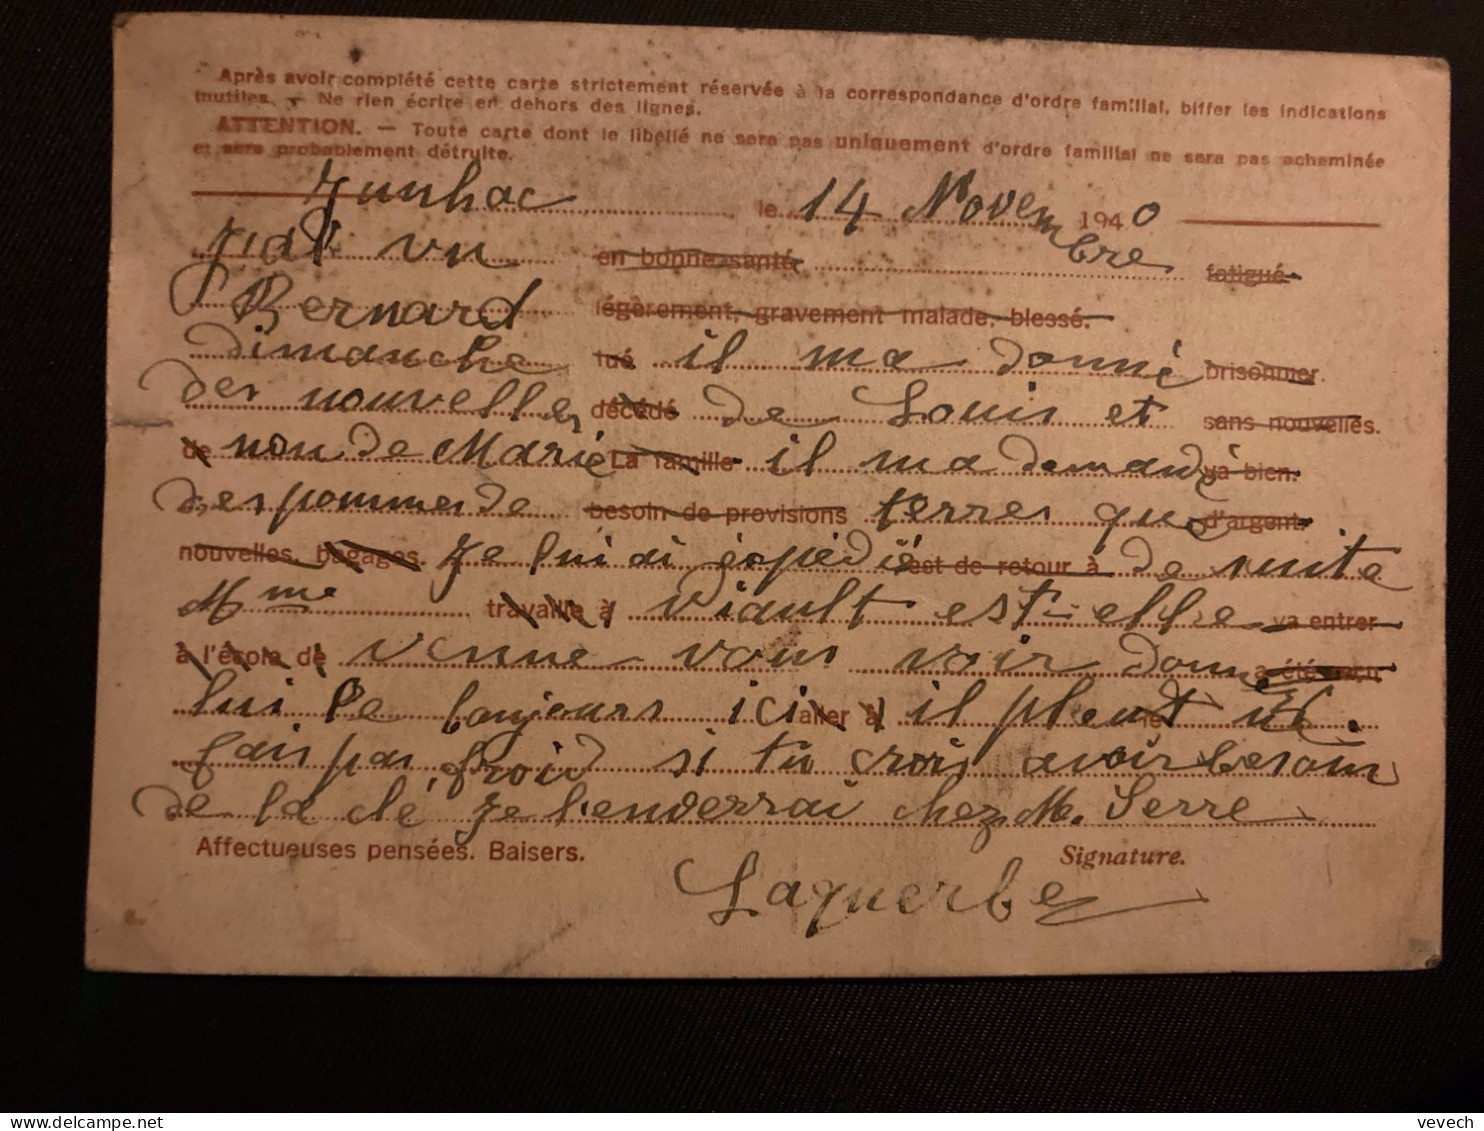 Après avoir complété cette carte strictement réservée à la correspondance d'ordre familial, biffer les indications
inutiles. — Ne rien écrire en dehors des lignes.
ATTENTION. — Toute carte dont le libellé ne sera pas uniquement d'ordre familial ne sera pas acheminée
et sera probablement détruite.
Junhac le 14 Novembre 1940
J'ai vu en bonne santé fatigué
Bernard légèrement, gravement malade, blessé.
dimanche tué il ma donné prisonnier.
des nouvelles décédé de Louis et sans nouvelles.
de non de Marie La famille il ma demandé va bien.
des pommes de besoin de provisions terres que d'argent
nouvelles, bagages. Je lui ai éxpédié est de retour à de suite
Mme travaille à Viault est-elle va entrer
à l'école de venue vous voir donne a été reçu
lui le toujours ici aller à il pleut le
fais pas froid si tu crois avoir besoin
de la clé je l'enverrai chez M. Serre
Affectueuses pensées. Baisers. Signature.
Laquerbe
vevech